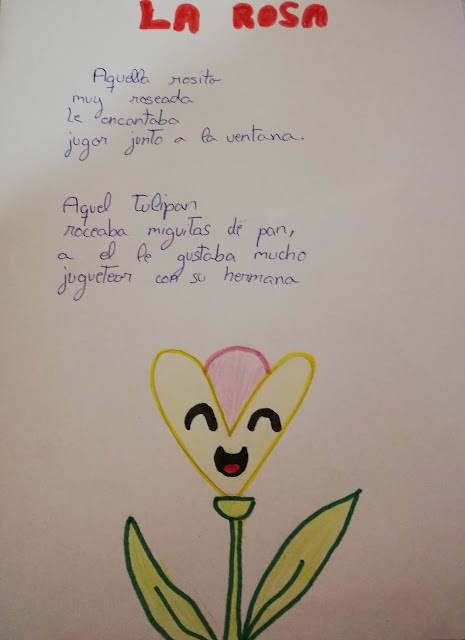 LA ROSA
Aquella rosita
muy roseada
le encantaba
jugar junto a la ventana.
Aquel tulipan
roceaba miguitas de pan,
a el le gustaba mucho
juguetear con su hermana